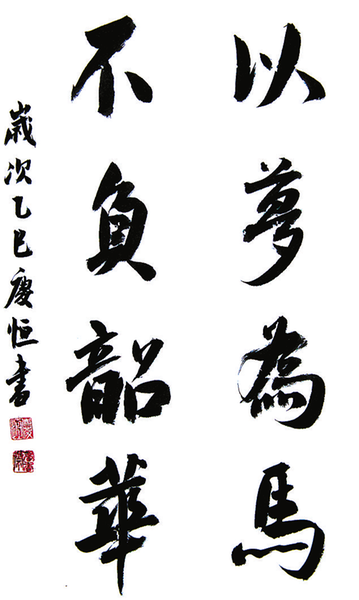 以夢為馬
不負韶華
歲次乙巳慶恒書